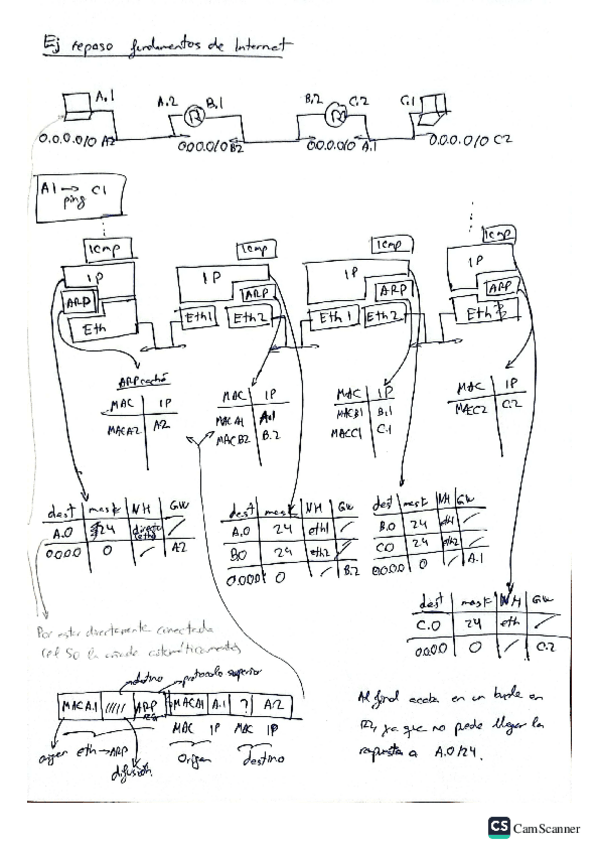 Ej repaso fundamentos de Internet
A.1 A.2 B.1 B.2 C.2 C.1
R R
0.0.0.0/0 A2 0.0.0.0/0 B2 0.0.0.0/0 A.1 0.0.0.0/0 C2
A1 → C1
ping
Icmp Icmp Icmp Icmp
IP IP IP IP
ARP ARP ARP ARP
Eth Eth1 Eth2 Eth1 Eth2 Eth
ARP caché
MAC IP
MACA2 A2
MAC IP
MACA1 A.1
MACB2 B.2
MAC IP
MACB1 B.1
MACC1 C.1
MAC IP
MACC2 C.2
dest mask NH GW
A.0 24 directo
0.0.0.0 0 / A2
dest mask NH GW
A.0 24 eth1 /
B.0 24 eth2 /
0.0.0.0 0 / B.2
dest mask NH GW
B.0 24 eth1 /
C.0 24 eth2 /
0.0.0.0 0 / A.1
dest mask NH GW
C.0 24 eth /
0.0.0.0 0 / C.2
Por estar directamente conectada
el SO la añade automáticamente
destino protocolo superior
MACA1 ///// ARP MACA1 A.1 ? A.2
MAC IP MAC IP
origen eth → ARP origen destino
difusión
Al final acaba en un bucle en
ya que no puede llegar la
respuesta a A.0/24.
CS CamScanner